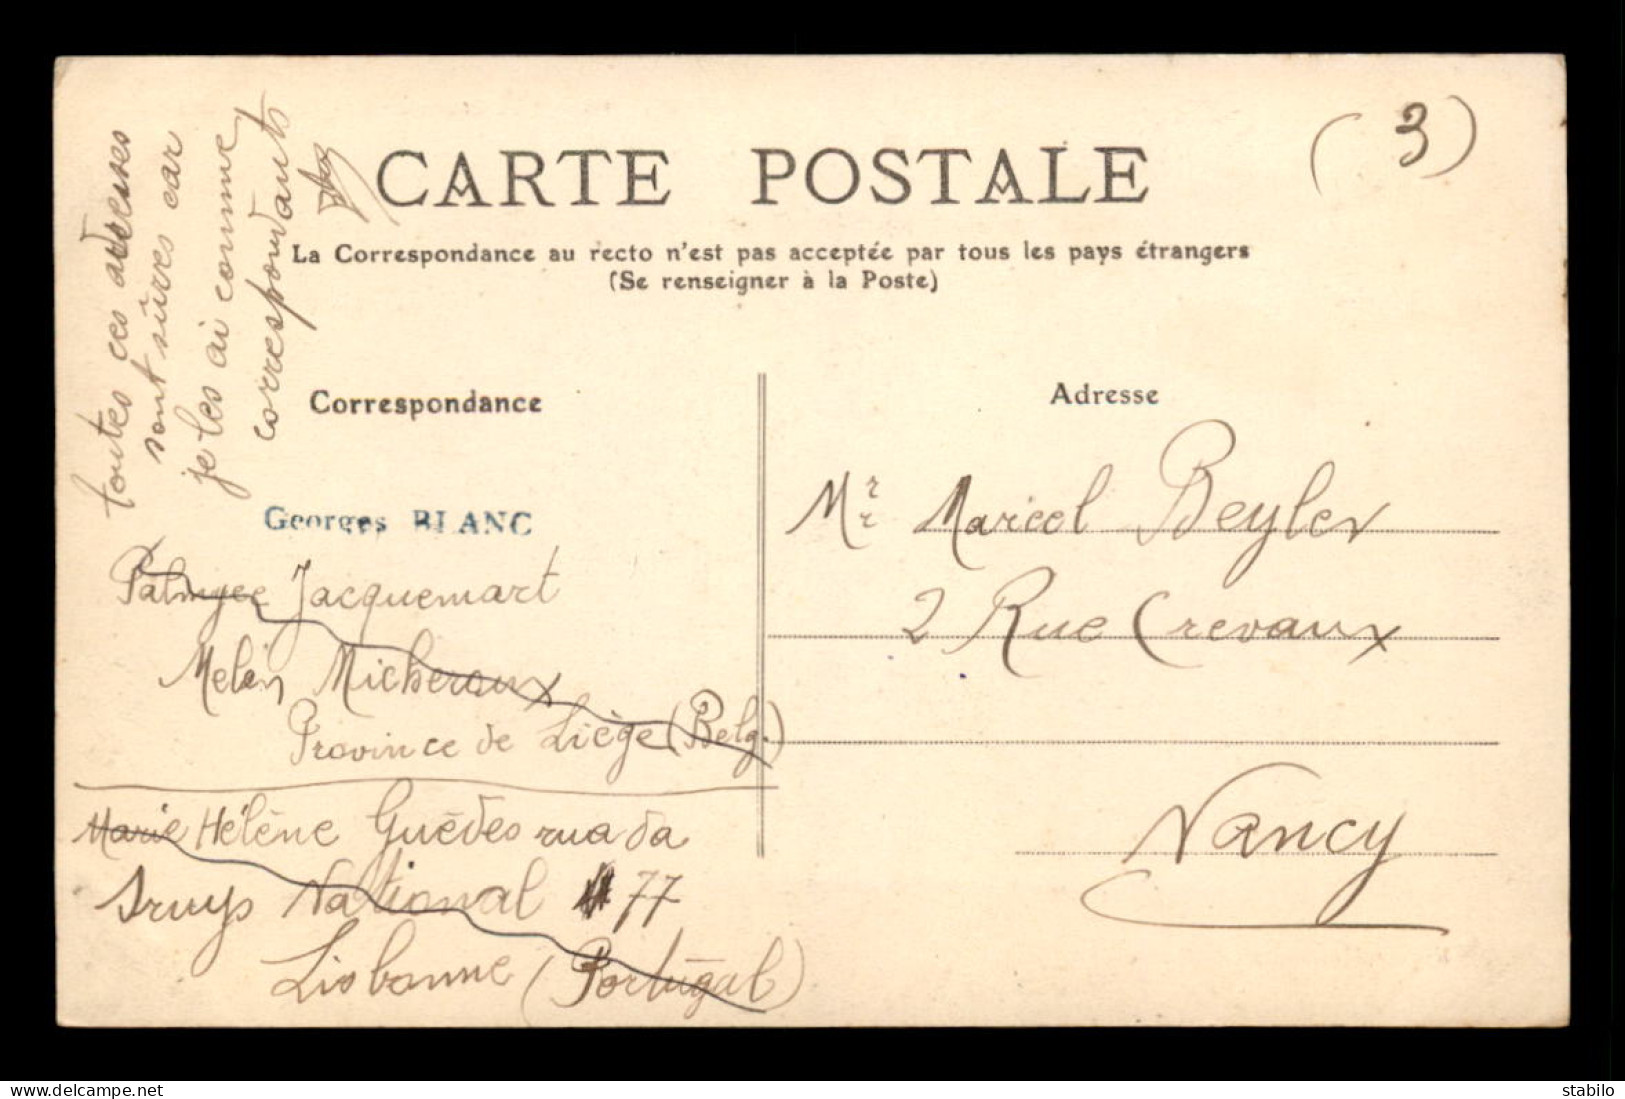 (3)
CARTE POSTALE
La Correspondance au recto n'est pas acceptée par tous les pays étrangers
(Se renseigner à la Poste)
toutes ces adresses
sont sûres car
je les ai comme
correspondants
Correspondance
Georges BLANC
Palmyre Jacquemart
Melen Micheroux
Province de Liège (Belg.)
Marie Hélène Guédes rua da
National 77
Lisbonne (Portugal)
Adresse
Mr Marcel Beyler
2 Rue Crevaux
Nancy
www.delcampe.net
stabilo